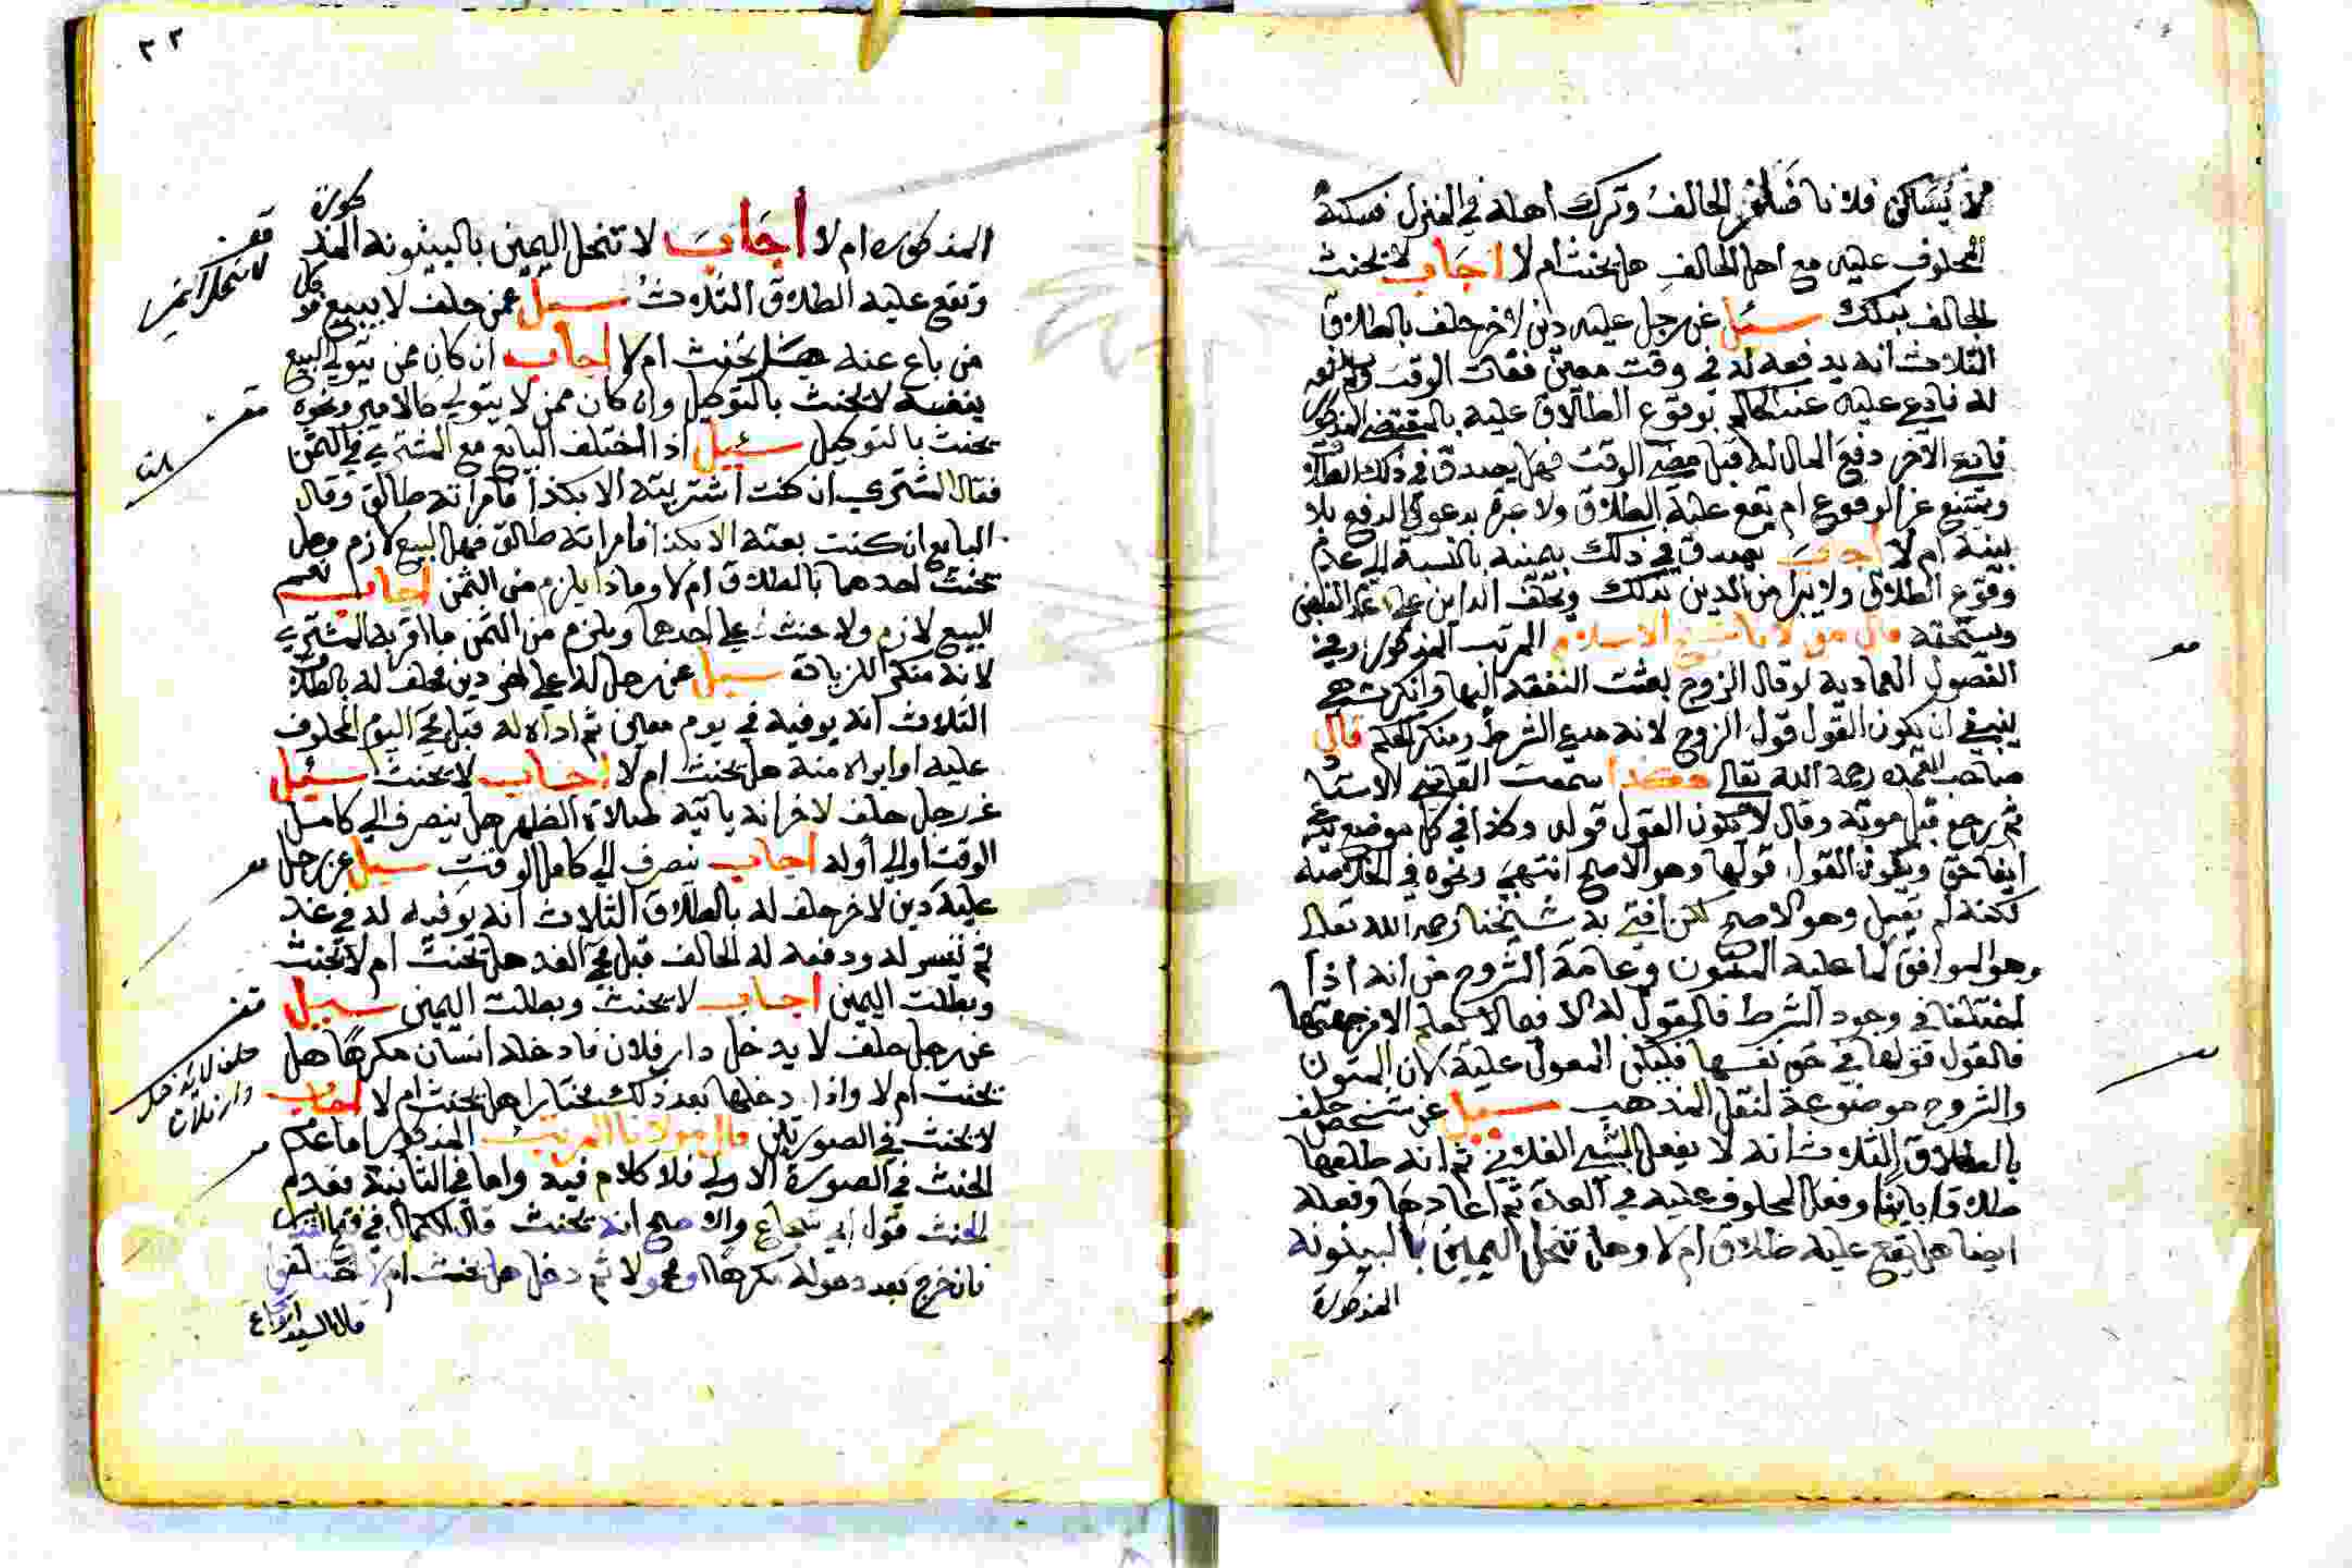 لا يساكن فلانا فسافر الحالف وترك اهله في المنزل فسكنه
المحلوف عليه مع اهل الحالف هل يحنث ام لا اجاب لا يحنث
الحالف بذلك سئيل عن رجل عليه دين لاخر حلف بالطلاق
الثلاث انه يدفعه له في وقت معين ففات الوقت
له فادعي عليه عند الحاكم بوقوع الطلاق عليه بالمقتضي المذكور
فادعي الاخر دفع المال له قبل مضي الوقت فهل يصدق في ذلك
ويمتنع عن الوقوع ام يقع عليه الطلاق ولا عبرة بدعوي الدفع بلا
بينة ام لا اجاب يصدق في ذلك بيمينه بالنسبة الي عدم
وقوع الطلاق ولا يبرا من الدين بذلك ويحلف الداين علي عدم القبض
ويستحقه قال مولانا شيخ الاسلام المرتب المذكور وفي
الفصول العمادية لو قال الزوج بعثت النفقة اليها وانكرت هي
ينبغي ان يكون القول قول الزوج لانه مدعي الشرط ومنكر الحكم قال
صاحب العمده رحمة الله تعالي هكذا سمعت القاضي الاستا
ثم رجع قبل موته وقال لا يكون القول قوله وكذا في كل موضع يدعي
ايفا حق ويكون القول قولها وهو الاصح انتهي ونحوه في الخلاصة
لكنه لم يقل وهو الاصح لكن افتي به شيخنا رحمه الله تعالي
وهو الموافق لما عليه المتون وعامة الشروح من انه اذا
اختلفا في وجود الشرط فالقول له الا فيما لا يعلم الا من جهتها
فالقول قولها في حق نفسها فليكن المعول عليه لان المتون
والشروح موضوعة لنقل المذهب سيل عن شخص حلف
بالطلاق الثلاث انه لا يفعل الشي الفلاني ثم انه طلقها
طلاقا باينا وفعل المحلوف عليه في العدة ثم اعادها وفعله
ايضا هل يقع عليه طلاق ام لا وهل تنحل اليمين بالبينونة
المذكورة
٢٢
المذكوره ام لا اجاب لا تنحل اليمين بالبينونه المذ
كورة
وتقع عليه الطلاق الثلاث سيل عمن حلف لا يبيع فوكل
من باع عنه هل يحنث ام لا اجاب ان كان ممن يتولي البيع
بنفسه لا يحنث بالتوكيل وان كان ممن لا يتولي كالامير ونحوه
يحنث بالتوكيل سئيل اذا اختلف البايع مع المشتري في الثمن
فقال المشتري ان كنت اشتريته الا بكذا فامراته طالق وقال
البايع ان كنت بعته الا بكذا فامراته طالق فهل البيع لازم وهل
يحنث احدهما بالطلاق ام لا وماذا يلزم من الثمن اجاب نعم
البيع لازم ولا حنث علي احدهما ويلزم من الثمن ما اقر به المشتري
لانه منكر للزيادة سيل عن رجل له علي اخر دين فحلف له بالطلاق
الثلاث انه يوفيه في يوم معين ثم اداه له قبل مجي اليوم المحلوف
عليه او ابراه منه هل يحنث ام لا اجاب لا يحنث سئيل
عن رجل حلف لاخر انه ياتيه لصلاة الظهر هل ينصرف الي كامل
الوقت او الي اوله اجاب ينصرف الي كامل الوقت سيل عن رجل
عليه دين لاخر حلف له بالطلاق الثلاث انه يوفيه له في غد
ثم تيسر له ودفعه له الحالف قبل مجي الغد هل يحنث ام لا يحنث
وبطلت اليمين اجاب لا يحنث وبطلت اليمين سيل
عن رجل حلف لا يدخل دار فلان فادخله انسان مكرها هل
يحنث ام لا واذا دخلها بعد ذلك مختارا هل يحنث ام لا اجاب
لا يحنث في الصورتين قال مولانا المرتب المذكور اما عدم
الحنث في الصورة الاولي فلا كلام فيه واما في الثانية فعدم
الحنث قول ابي شجاع والاصح انه يحنث قال الكمال في
فان خرج بعد دخوله مكرها ثم دخل هل يحنث ام لا اختلفوا
قال السيد ابو شجاع
لا تنحل اليمين
حلف لا يدخل
دار فلان